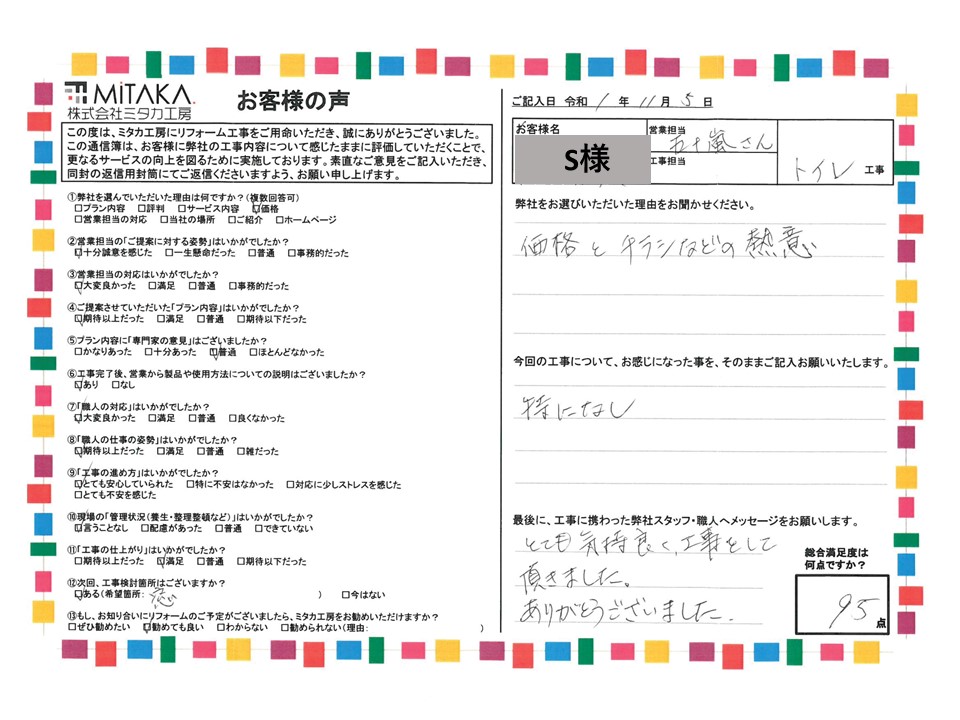 MiTAKA.
株式会社ミタカ工房
お客様の声
この度は、ミタカ工房にリフォーム工事をご用命いただき、誠にありがとうございました。
この通信簿は、お客様に弊社の工事内容について感じたままに評価していただくことで、
更なるサービスの向上を図るために実施しております。素直なご意見をご記入いただき、
同封の返信用封筒にてご返信くださいますよう、お願い申し上げます。
①弊社を選んでいただいた理由は何ですか？(複数回答可)
□プラン内容 □評判 □サービス内容 ☑価格
□営業担当の対応 □当社の場所 □ご紹介 □ホームページ
②営業担当の「ご提案に対する姿勢」はいかがでしたか？
☑十分誠意を感じた □一生懸命だった □普通 □事務的だった
③営業担当の対応はいかがでしたか？
☑大変良かった □満足 □普通 □事務的だった
④ご提案させていただいた「プラン内容」はいかがでしたか？
☑期待以上だった □満足 □普通 □期待以下だった
⑤プラン内容に「専門家の意見」はございましたか？
□かなりあった □十分あった ☑普通 □ほとんどなかった
⑥工事完了後、営業から製品や使用方法についての説明はございましたか？
☑あり □なし
⑦「職人の対応」はいかがでしたか？
☑大変良かった □満足 □普通 □良くなかった
⑧「職人の仕事の姿勢」はいかがでしたか？
☑期待以上だった □満足 □普通 □雑だった
⑨「工事の進め方」はいかがでしたか？
☑とても安心していられた □特に不安はなかった □対応に少しストレスを感じた
□とても不安を感じた
⑩現場の「管理状況(養生・整理整頓など)」はいかがでしたか？
☑言うことなし □配慮があった □普通 □できていない
⑪「工事の仕上がり」はいかがでしたか？
□期待以上だった ☑満足 □普通 □期待以下だった
⑫次回、工事検討箇所はございますか？
☑ある(希望箇所: 窓 ) □今はない
⑬もし、お知り合いにリフォームのご予定がございましたら、ミタカ工房をお勧めいただけますか？
□ぜひ勧めたい ☑勧めても良い □わからない □勧められない(理由: )
ご記入日 令和 1 年 11 月 5 日
お客様名
S様
営業担当
五十嵐さん
工事担当
トイレ 工事
弊社をお選びいただいた理由をお聞かせください。
価格とチラシなどの熱意
今回の工事について、お感じになった事を、そのままご記入お願いいたします。
特になし
最後に、工事に携わった弊社スタッフ・職人へメッセージをお願いします。
とても気持良く、工事をして
頂きました。
ありがとうございました.
総合満足度は
何点ですか？
95 点